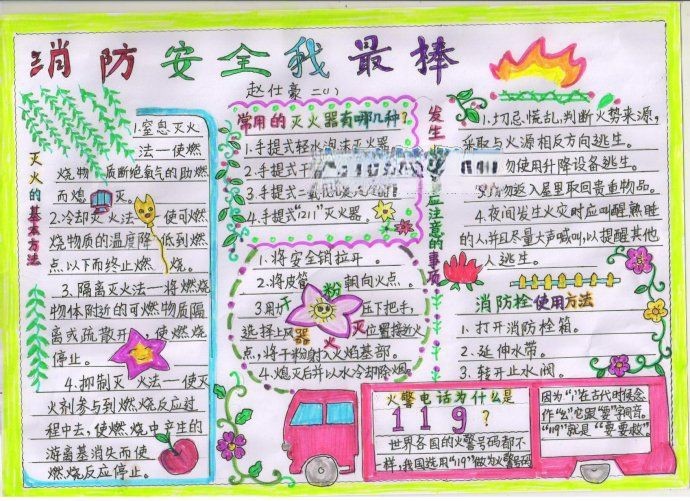 消防安全我最棒
赵仕豪 二(1)
灭火的基本方法
1.窒息灭火
法一使燃
烧物质断绝氧气的助燃
而熄灭。
2.冷却灭火法一使可燃
烧物质的温度降低到燃
点以下而终止燃烧。
3.隔离灭火法一将燃烧
物体附近的可燃物质隔
离或疏散开,使燃烧
停止。
4.抑制灭火法一使灭
火剂参与到燃烧反应过
程中去,使燃烧中产生的
游离基消失而使
燃烧反应停止。
常用的灭火器有哪几种?
1.手提式轻水泡沫灭火器
2.手提式干
3.手提式二氧
4.手提式"1211"灭火器。
干粉灭火器
1.将安全销拉开。
2.将皮管朝向火点。
3.用力压下把手,
选择上风位置接近火
点,将干粉射入火焰基部。
4.熄灭后并以水冷却除烟。
发生
应注意的事项
1.切忌慌乱,判断火势来源,
采取与火源相反方向逃生。
勿使用升降设备逃生。
勿返入屋里取回贵重物品。
4.夜间发生火灾时应叫醒熟睡
的人,并且尽量大声喊叫,以提醒其他
人逃生。
消防栓使用方法
1.打开消防栓箱。
2.延伸水带。
3.转开止水阀。
火警电话为什么是
119?
世界各国的火警号码都不一
样,我国选用"119"做为火警号码
因为"1"在古代时候念
作"幺"它跟"要"字同音。
"119"就是"要要救"。